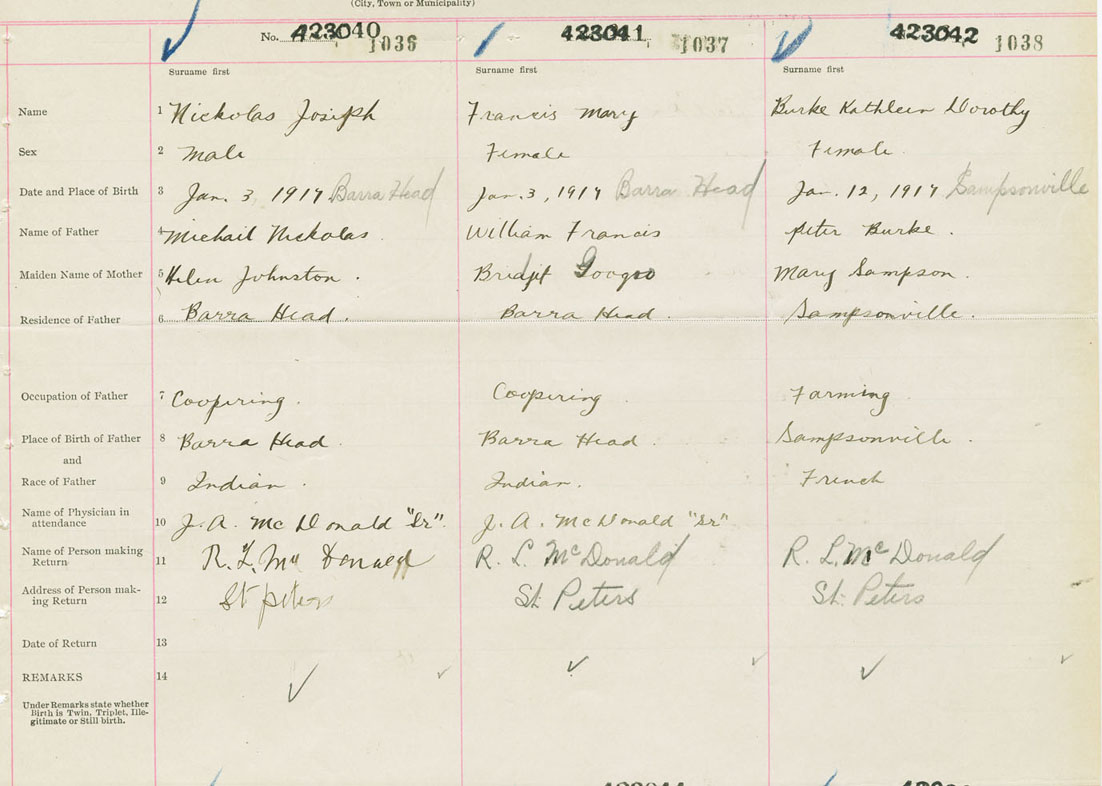 (City, Town or Municipality)
No. 423040 1036 423041 1037 423042 1038
Surname first Surname first Surname first
Name 1 Nickolas Josiph Francis Mary Burke Kathleen Dorothy
Sex 2 Male Female Female.
Date and Place of Birth 3 Jan. 3, 1917 Barra Head Jan. 3, 1917 Barra Head Jan. 12, 1917 Sampsonville
Name of Father 4 Michail Nickolas. William Francis Peter Burke.
Maiden Name of Mother 5 Helen Johnston. Bridjet Googoo Mary Sampson.
Residence of Father 6 Barra Head. Barra Head. Sampsonville.
Occupation of Father 7 Coopering. Coopering. Farming
Place of Birth of Father 8 Barra Head. Barra Head. Sampsonville.
and
Race of Father 9 Indian. Indian. French
Name of Physician in
attendance 10 J. A. McDonald "Dr". J. A. McDonald "Dr"
Name of Person making
Return 11 R. L. Mc Donald R. L. McDonald R. L. McDonald
Address of Person mak-
ing Return 12 St Peters St. Peters St. Peters
Date of Return 13
REMARKS 14
Under Remarks state whether
Birth is Twin, Triplet, Ille-
gitimate or Still birth.